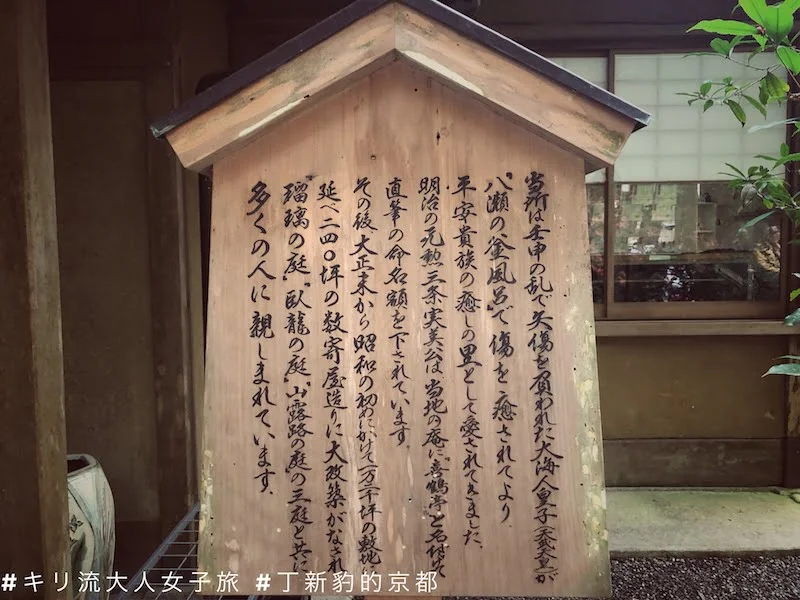 当所は壬申の乱で矢傷を負われた大海人皇子（天武天皇）が
"八瀬の釜風呂"で傷を癒されてより
平安貴族の癒しの里として愛されてきました。
明治の元勲三条実美公は当地の庵に"喜鶴亭"と名付けて
直筆の命名額を下されています
その後大正末から昭和の初めにかけて一万二千坪の敷地に
延べ二四〇坪の数寄屋造りに大改築がなされ
"瑠璃の庭""臥龍の庭""山露路の庭の三庭と共に
多くの人に親しまれています.
#キリ流大人女子旅 #丁新豹的京都